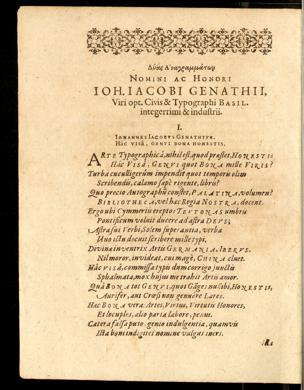 Δυὰς Ἀναγραμμάτων
NOMINI AC HONORI
IOH. IACOBI GENATHII,
Viri opt. Civis & Typographi BASIL.
integerrimi & industrii.
I.
IOHANNES IACOBVS GENATHIVS.
HAC VISÂ, GENVI BONA HONESTIS.
ARTE Typographicâ, nihil est, quod præstet, HONESTIS
HAC VISÂ, GENVI quot BONA mille VIRIS?
Turba cuculligerûm impendit quot temporis olim
Scribendis, calamo sæpè rigente, libris?
Quo precio Autographû constet, PALATINA, volumen?
BIBLIOTHECA, vel hac Regia NOSTRA, docent.
Ergo ubi Cymmeriis ereptos TEVTONAS umbris
Pontificum voluit ducere ad astra DEVS;
Astra fui Verbi, Solem superantia, verba
Multis docuit scribere mille typis,
Divina inventrix Artis GERMANIA. IBERVS,
Nil moror, invideat, cui magè, CHINA cluet.
HAC VISÂ, commissa typis dum corrigo justis
Sphalmata, mox hujus me trahit Artis amor.
Quâ BONA tot GENVI, quot Gãges nescibi, HONESTIS,
Aurifer, aut Crœsi non genuere Lares.
HAC BONA vera: Artes, Virtus, Virtutis Honores,
Et locuples, alio parta labore, penus.
Cætera falsa puto. genio indulgentia, quamvis
Ista boni indigitet nomine vulgus iners.